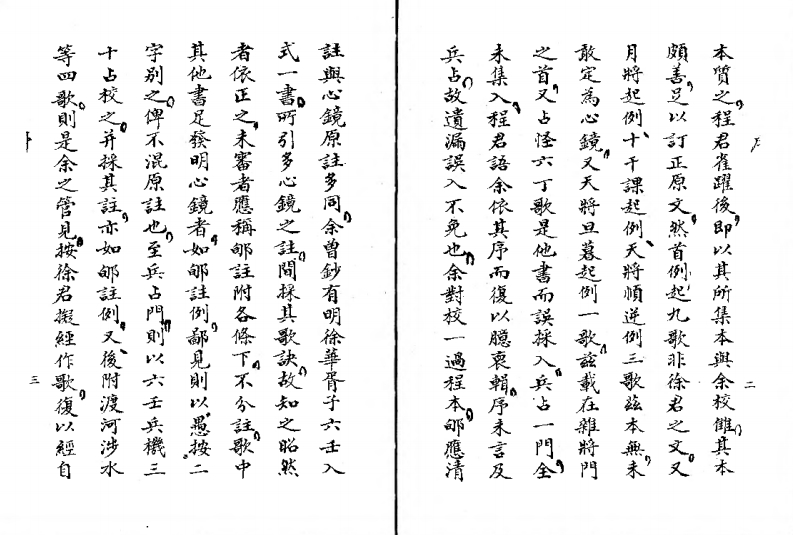 本質之程君雀躍後即以其所集本與余校讎其本
頗善足以訂正原文然首例起九歌非徐君之文又
月將起例十干課起例天將順逆例三歌茲本無未
敢定為心鏡又天將旦暮起例一歌茲載在雜將門
之首又占怪六丁歌是他書而誤採入兵占一門全
未集入程君語余依其序而復以臆裒輯序未言及
兵占故遺漏誤入不免也余對校一過程本邮應清
二
註與心鏡原註多同余曾鈔有明徐華胥子六壬入
式一書所引多心鏡之註間採其歌訣故知之昭然
者依正之未審者應稱邮註附各條下不分註歌中
其他書足發明心鏡者如邮註例鄙見則以愚按二
字別之俾不混原註也至兵占門則以六壬兵機三
十占校之并採其註亦如邮註例又後附渡河涉水
等四歌則是余之管見按徐君擬經作歌復以經自
三